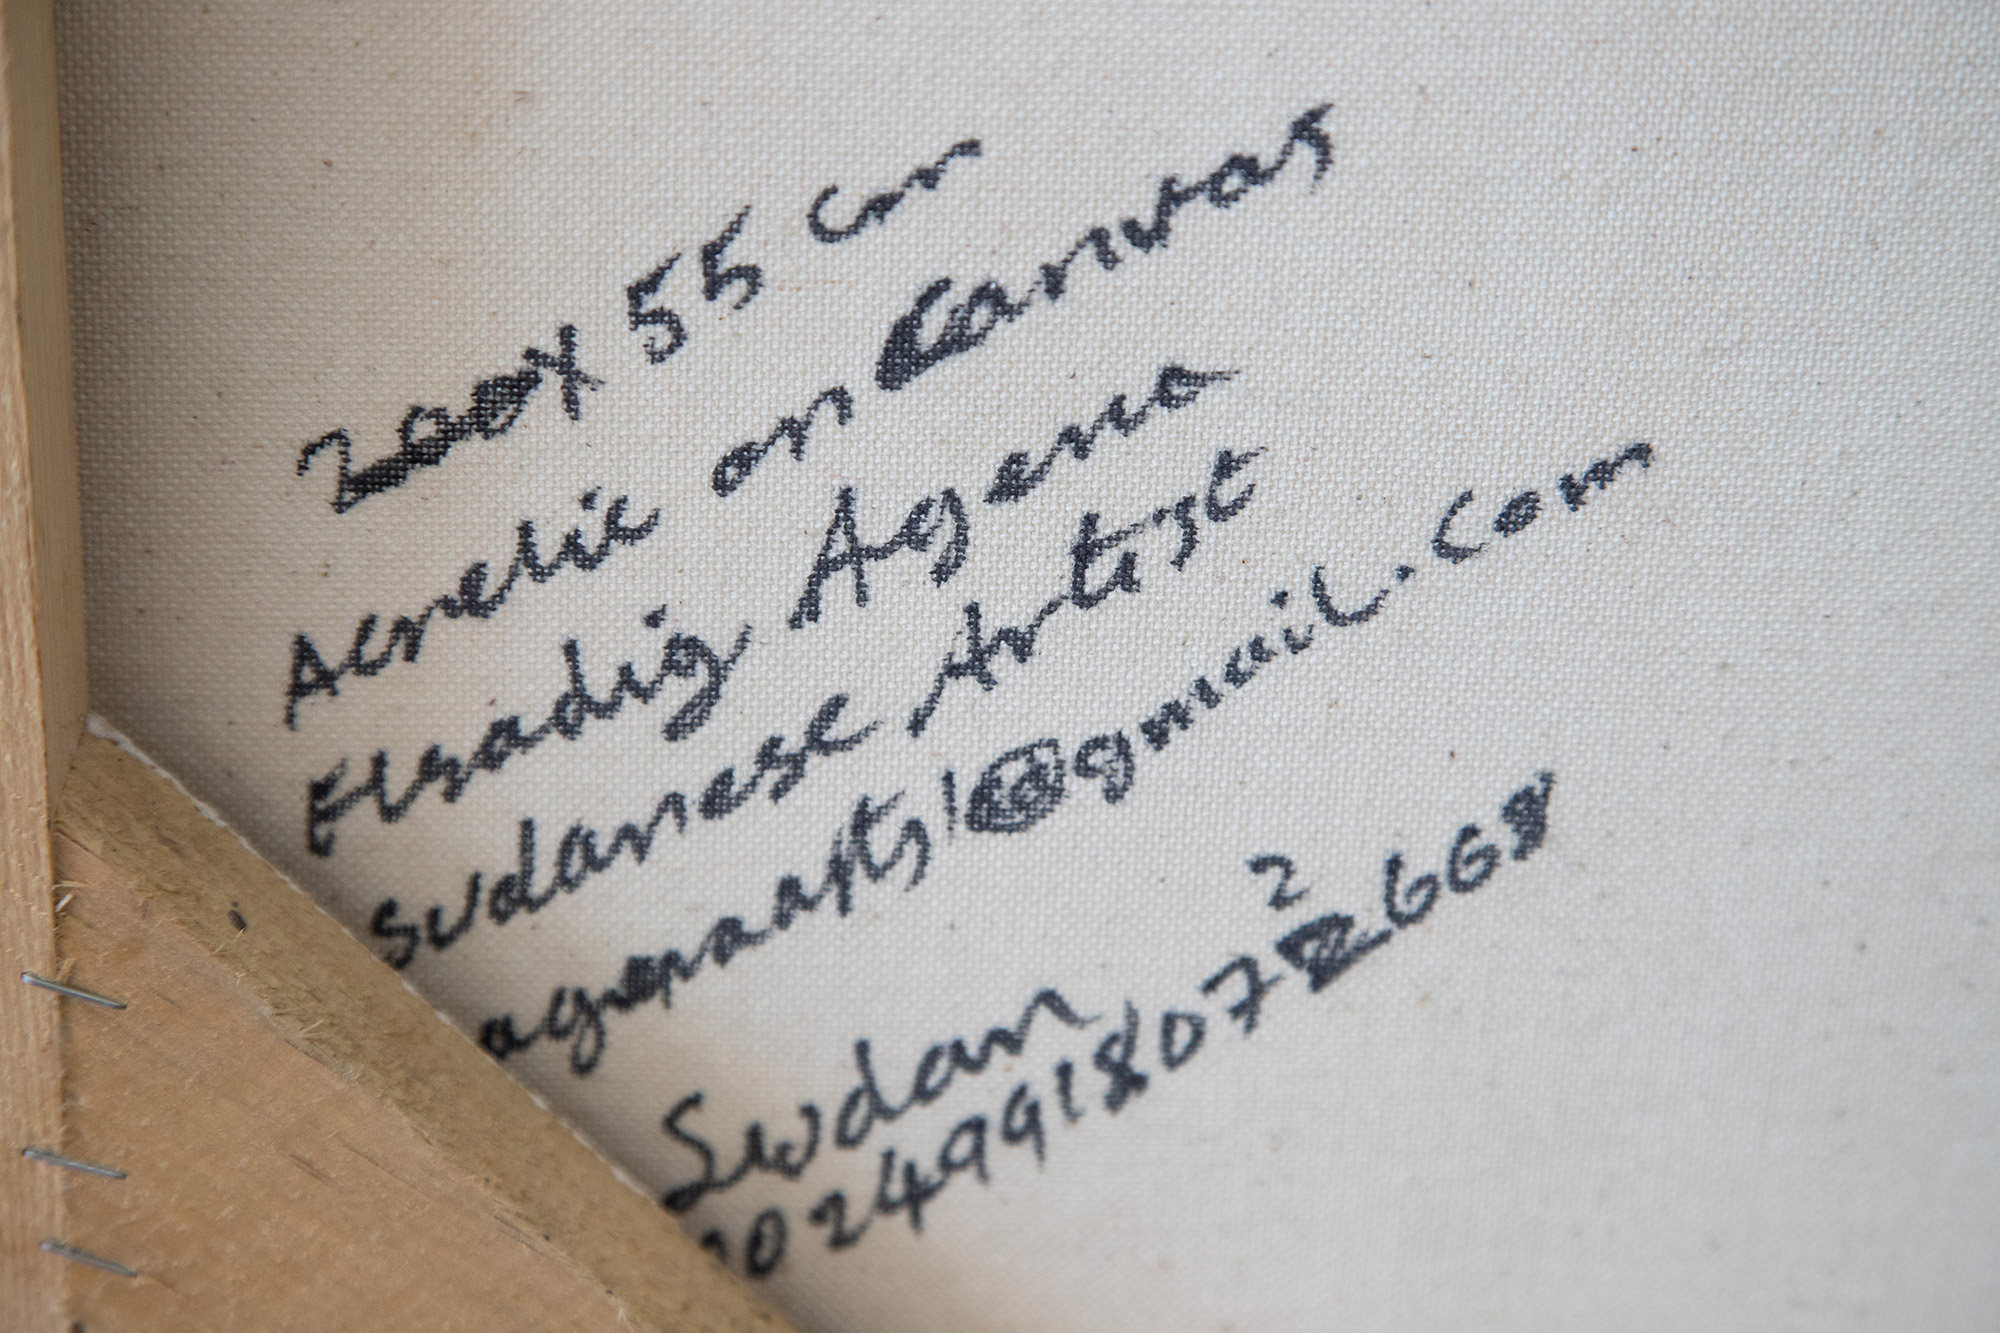 200X 55 cm
Acrelic on Canvas
Elsadig Agena
Sudanese Artist
agenaarts1@gmail.com
Sudan
00249918072668